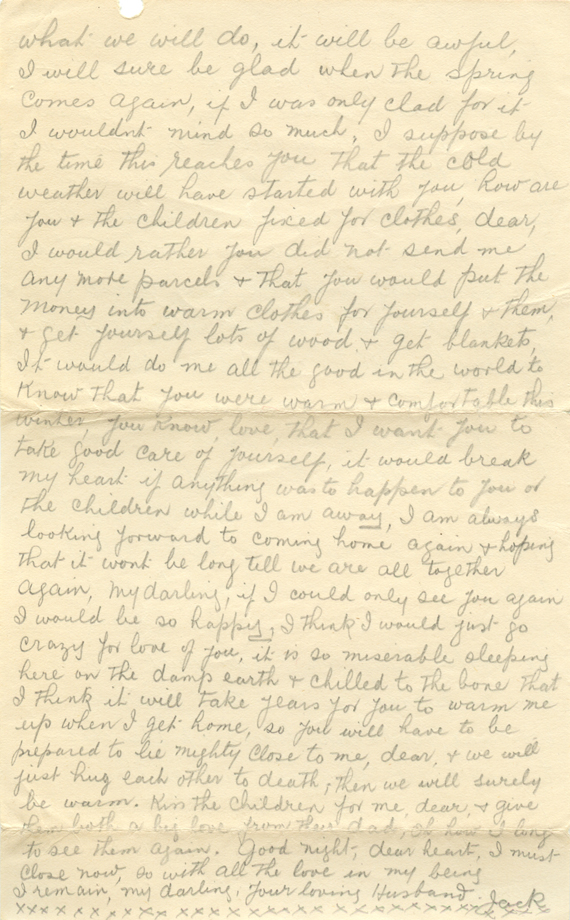 what we will do, it will be awful,
I will sure be glad when the spring
comes again, if I was only clad for it
I wouldn't mind so much, I suppose by
the time this reaches you that the cold
weather will have started with you, how are
you & the children fixed for clothes, dear,
I would rather you did not send me
any more parcels & that you would put the
money into warm clothes for yourself & them,
& get yourself lots of wood & get blankets,
It would do me all the good in the world to
know that you were warm & comfortable this
winter, you know, love, that I want you to
take good care of yourself, it would break
my heart if anything was to happen to you or
the children while I am away, I am always
looking forward to coming home again & hoping
that it wont be long till we are all together
again, my darling, if I could only see you again
I would be so happy, I think I would just go
crazy for love of you, it is so miserable sleeping
here on the damp earth & chilled to the bone that
I think it will take years for you to warm me
up when I get home, so you will have to be
prepared to lie mighty close to me, dear, & we will
just hug each other to death, then we will surely
be warm. Kiss the children for me dear, & give
them both a big love from their Dad, oh how I long
to see them again. Good night, dear heart, I must
close now, so with all the love in my being
I remain, my darling, your loving Husband, Jack
xxxxxxxxxxxxxxxxxxxxxxxxxxxxx